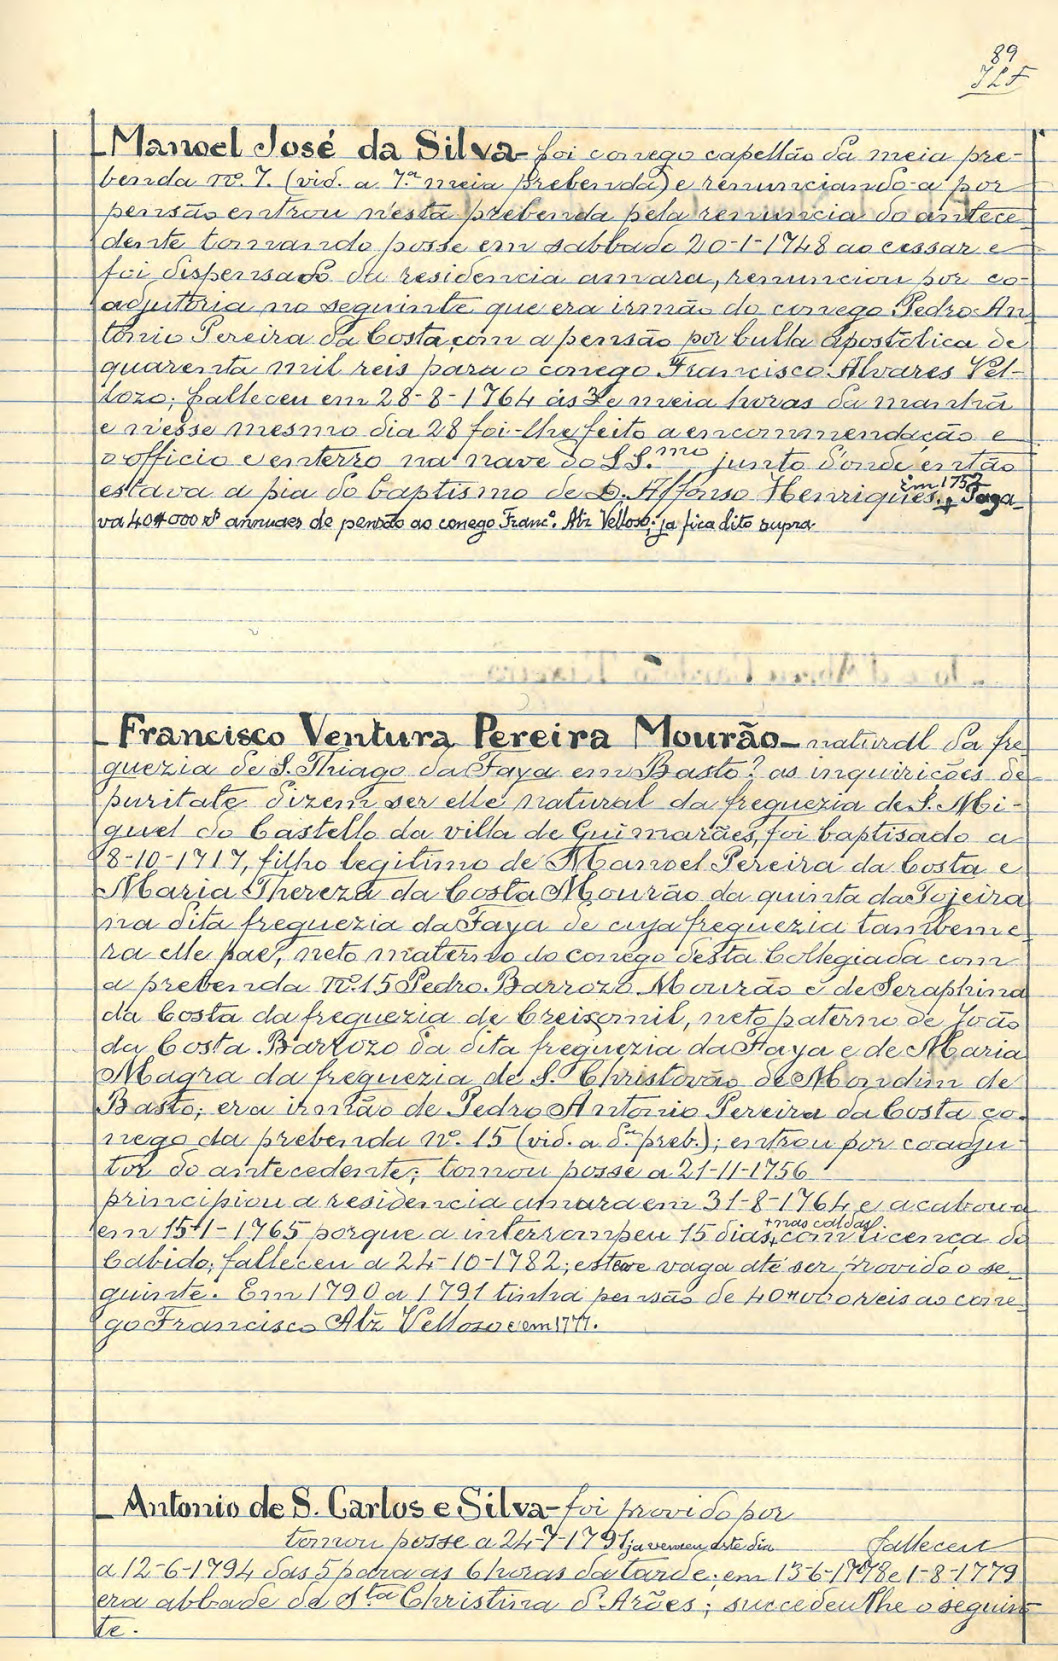 89
JLF
Manoel José da Silva - foi conego capellão da meia pre-
benda nº. 7. (vid. a 7.ª meia prebenda) e renunciando-a por
pensão entrou n'esta prebenda pela renuncia do antece-
dente tomando posse em sabbado 20-1-1748 ao cessar e
foi dispensado da residencia amara, renunciou por co-
adjutoria no seguinte que era irmão do conego Pedro An-
tonio Pereira da Costa, com a pensão por bulla apostolica de
quarenta mil reis para o conego Francisco Alvares Vel-
lozo; falleceu em 28-8-1764 ás 3 e meia horas da manhã
e n'esse mesmo dia 28 foi-lhe feito a encommendação e
o officio e enterro na nave do SS.mo junto d'onde então
estava a pia do baptismo de D. Affonso Henriques. + Em 1757 Paga-
va 40#000 rs annuaes de pensão ao conego Franc.º Alz Velloso; ja fica dito supra
Francisco Ventura Pereira Mourão - natural da fre
guezia de S. Thiago da Faya em Basto? as inquirições de
puritate dizem ser elle natural da freguezia de S. Mi-
guel do Castello da villa de Guimarães, foi baptisado a
8-10-1717, filho legitimo de Manoel Pereira da Costa e
Maria Thereza da Costa Mourão da quinta da Tojeira
na dita freguezia da Faya de cuja freguezia tambem e-
ra elle pae, neto materno do conego desta Collegiada com
a prebenda nº. 15 Pedro Barrozo Mourão e de Seraphina
da Costa da freguezia de Creixomil, neto paterno de João
da Costa Barrozo da dita freguezia da Faya e de Maria
Magra da freguezia de S. Christovão de Mondim de
Basto; era irmão de Pedro Antonio Pereira da Costa co-
nego da prebenda nº. 15 (vid. a d.ª preb.); entrou por coadju-
tor do antecedente; tomou posse a 21-11-1756
principiou a residencia amara em 31-8-1764 e acabou-a
em 15-1-1765 porque a interrompeu 15 dias + nas caldas com licença do
Cabido; falleceu a 24-10-1782; esteve vaga até ser provido o se-
guinte. Em 1790 a 1791 tinha pensão de 40#000 reis ao cone-
go Francisco Alz Velloso e em 1777.
Antonio de S. Carlos e Silva - foi provido por
tomou posse a 24-7-1791 ja venceu este dia falleceu
a 12-6-1794 das 5 para as 6 horas da tarde; em 13-6-1778 e 1-8-1779
era abbade de Sta Christina d'Arões; succedeu-lhe o seguin-
te.